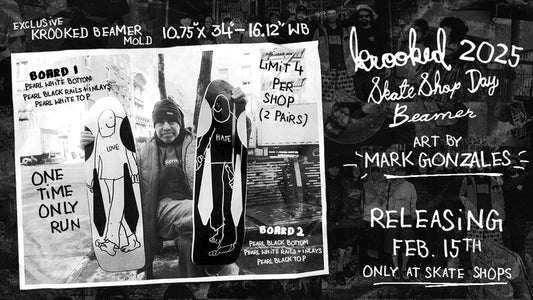 EXCLUSIVE
KROOKED BEAMER
MOLD
10.75" X 34" – 16.12" WB
BOARD 1
PEARL WHITE BOTTOM
PEARL BLACK RAILS + INLAYS
PEARL WHITE TOP
LIMIT 4
PER
SHOP
(2 PAIRS)
ONE
TIME
ONLY
RUN
LOVE
HATE
BOARD 2
PEARL BLACK BOTTOM
PEARL WHITE RAILS + INLAYS
PEARL BLACK TOP
krooked 2025
Skate Shop Day
Beamer
ART BY
MARK GONZALES
RELEASING
FEB. 15TH
ONLY AT SKATE SHOPS